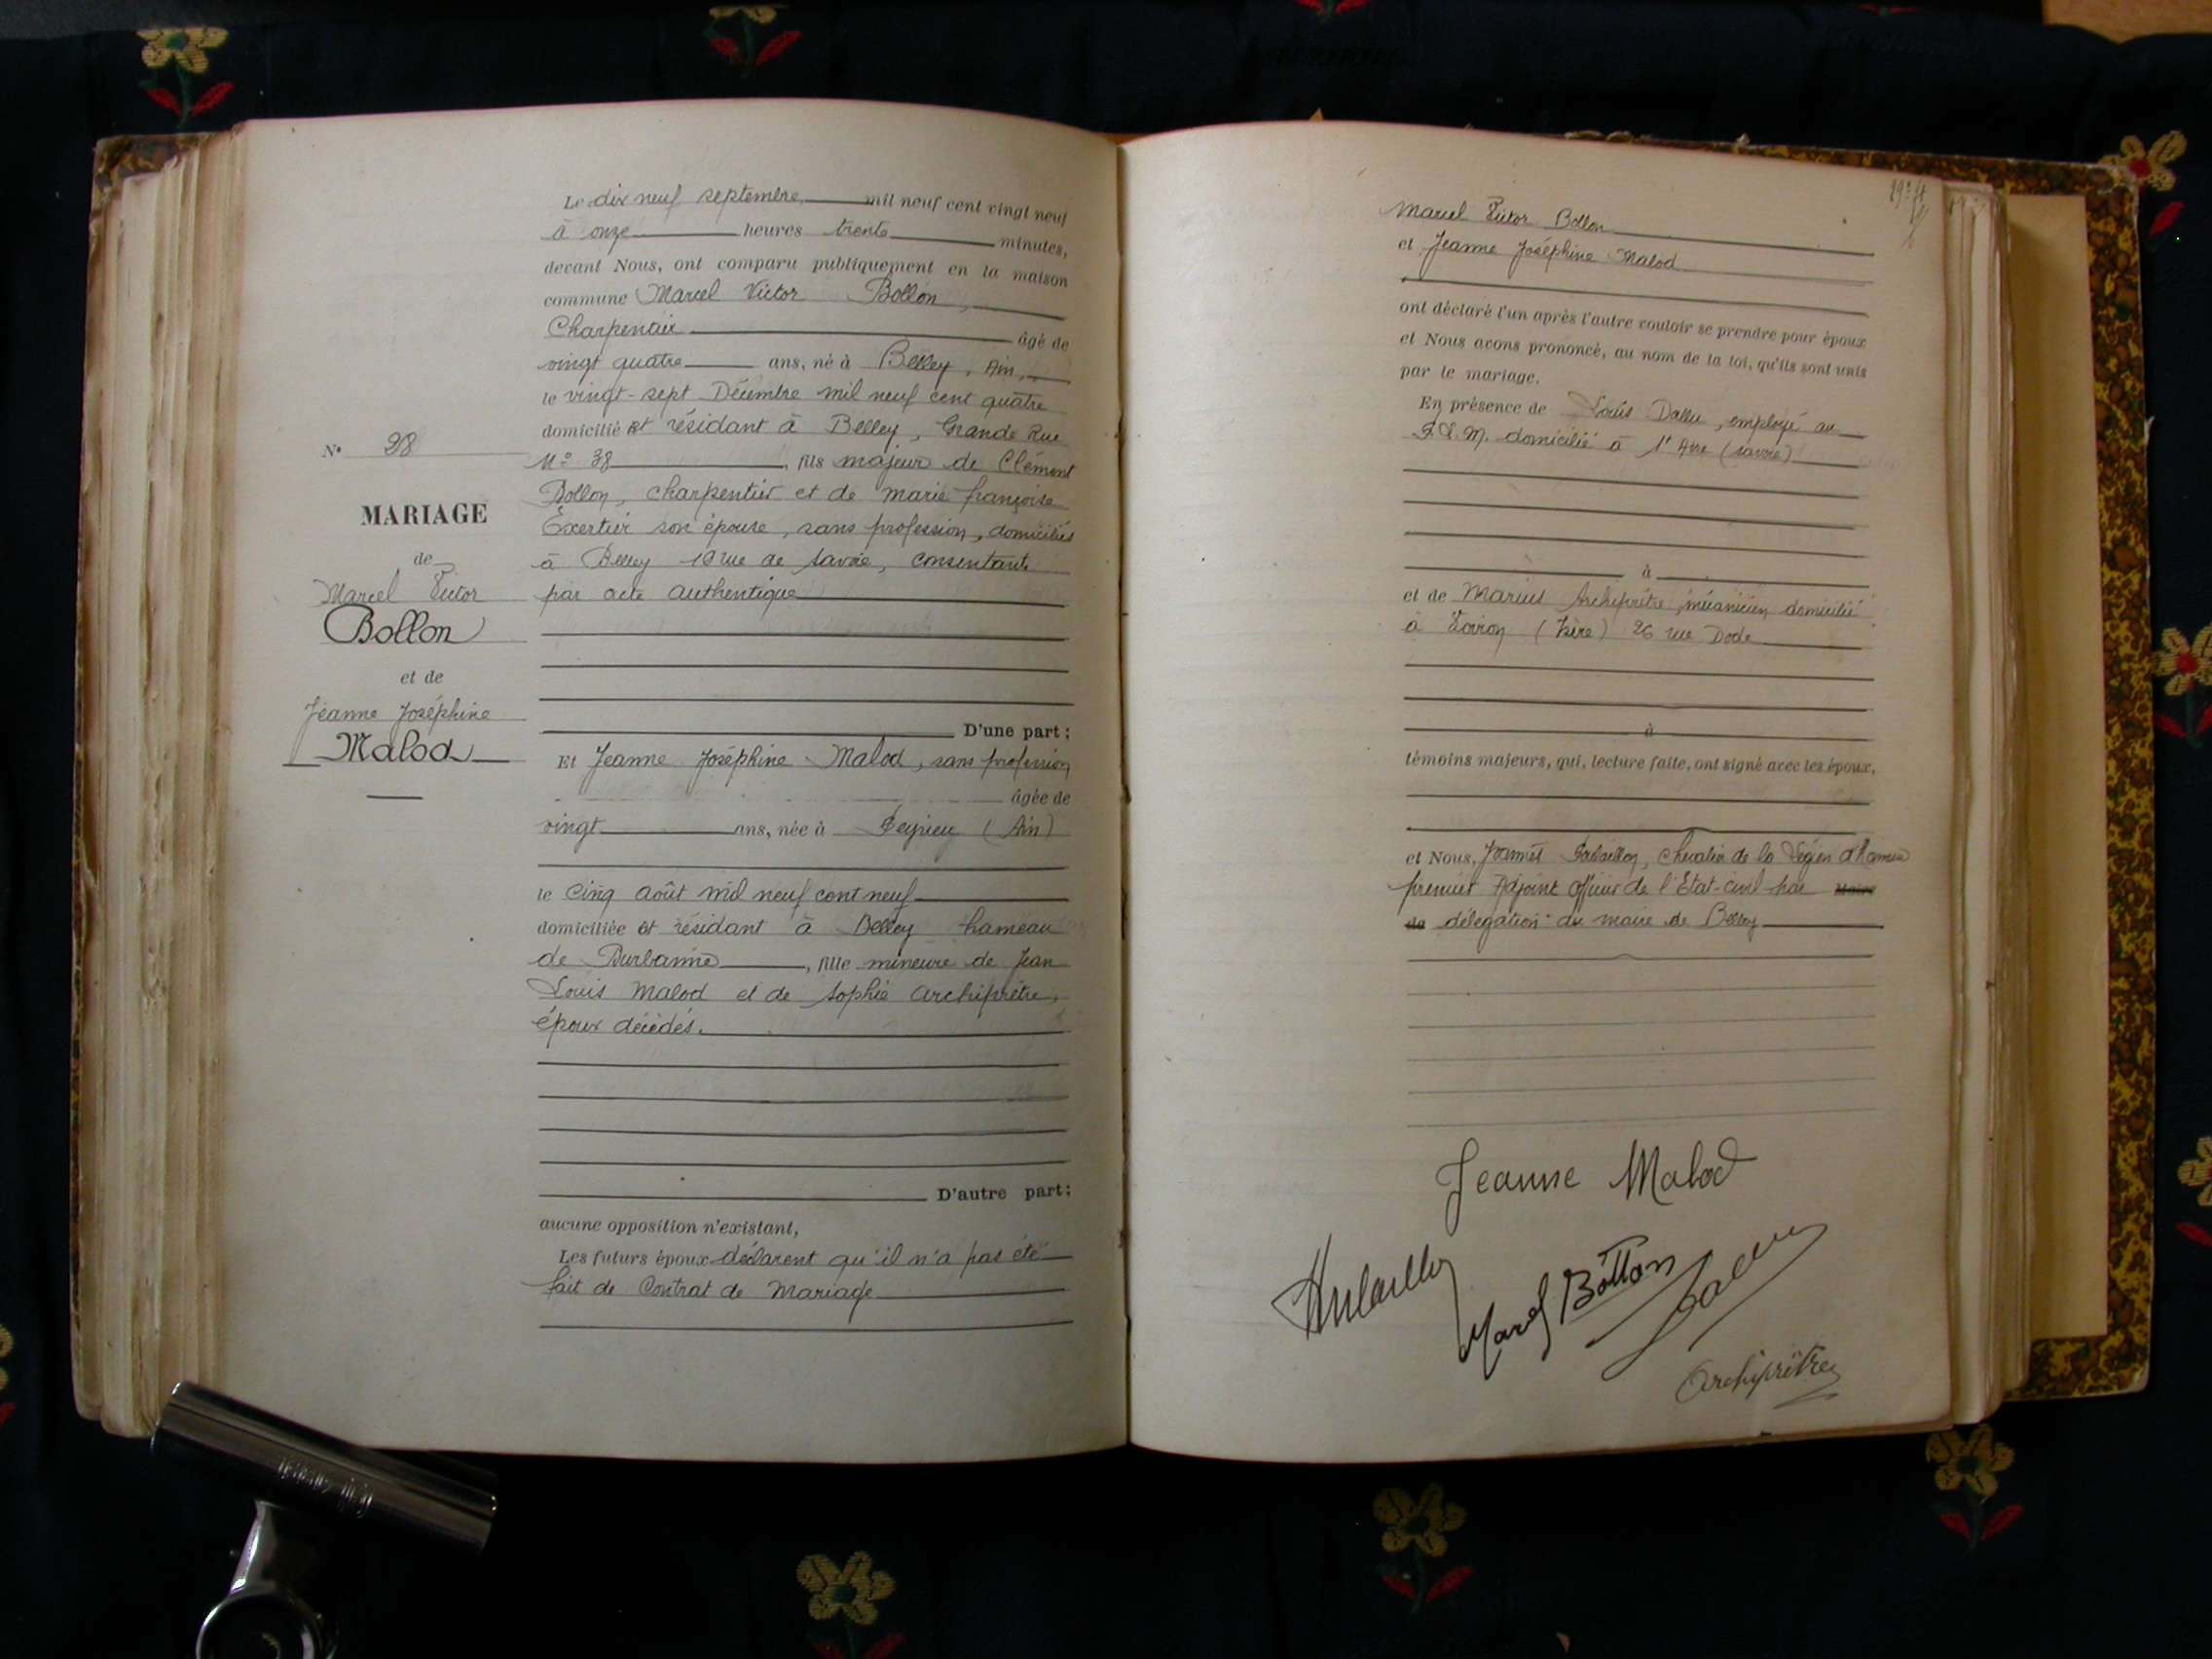 Le dix neuf septembre mil neuf cent vingt neuf
à onze heures trente minutes,
devant Nous, ont comparu publiquement en la maison
commune Marcel Victor Bollon,
Charpentier âgé de
vingt quatre ans, né à Belley, Ain,
le vingt-sept Décembre mil neuf cent quatre
domicilié et résidant à Belley, Grande Rue
N° 38, fils majeur de Clément
Bollon, charpentier et de marie françoise
Exertier son épouse, sans profession, domiciliés
à Belley 19 rue de Savoie, consentants
par acte authentique
N° 28
MARIAGE
de
Marcel Victor
Bollon
et de
Jeanne Joséphine
Malod
D'une part;
Et Jeanne Joséphine Malod, sans profession
âgée de
vingt ans, née à Peyrieu (Ain)
le cinq août mil neuf cent neuf
domiciliée et résidant à Belley hameau
de Burbanne, fille mineure de Jean
Louis Malod et de Sophie Archiprêtre,
époux décédés.
D'autre part;
aucune opposition n'existant,
Les futurs époux déclarent qu'il n'a pas été
fait de Contrat de Mariage
Marcel Victor Bollon
et Jeanne Joséphine Malod
ont déclaré l'un après l'autre vouloir se prendre pour époux
et Nous avons prononcé, au nom de la loi, qu'ils sont unis
par le mariage.
En présence de Louis employé au
P.L.M. domicilié à (Savoie)
à
et de Marius Archiprêtre, mécanicien, domicilié
à Voiron (Isère) 26 rue Dode
à
témoins majeurs, qui, lecture faite, ont signé avec les époux,
et Nous, chevalier de la Légion d'honneur
premier Adjoint officier de l'Etat-civil par Maire
de délégation du maire de Belley
Jeanne Malod
Marcel Bollon
Archiprêtre